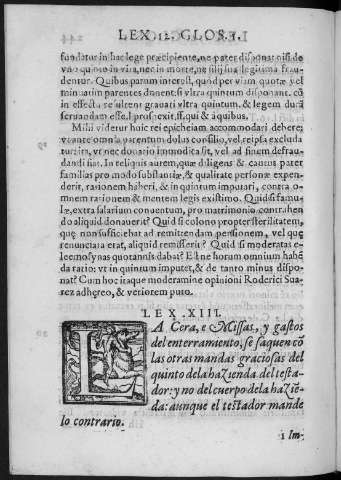 LEX 12. GLOS. I
fundatur in hac lege præcipiente, ne pater disponat nisi de
vno quinto in vita, nec in morte, ne filij sua legitima frau-
dentur. Quibus parum interest, quod per viam quotæ vel
minutatim parentes donent: si vltra quintum disponant. cũ
in effectu resultent grauati vltra quintum, & legem durã
seruandam esse. l. prospexit. ff. qui & à quibus.
Mihi videtur huic rei epicheiam accommodari debere;
vt ante omnia parentum dolus consilio, vel re ipsa excluda
tur: ita, vt nec donatio immodica sit, vel ad finem defrau-
dandi fiat. In reliquis autem, quæ diligens & cautus pater
familias pro modo substantiæ, & qualitate personæ expen-
derit, rationem haberi, & in quintum imputari, contra om-
nem rationem & mentem legis existimo. Quid si famu-
læ, extra salarium conuentum, pro matrimonio contrahen
do aliquid donauerit? Quid si colono propter sterilitatem,
quę non sufficiebat ad remittendam pensionem, vel quę
renunciata erat, aliquid remisserit? Quid si moderatas e-
leemosynas quotannis dabat? Est ne horum omnium habẽ
da ratio: vt in quintum imputet, & de tanto minus dispo-
nat? Cum hoc itaque moderamine opinioni Roderici Sua-
rez adhęreo, & veriorem puto.
LEX .XIII.
LA Cera, e Missas, y gastos
del enterramiento, se saquen cõ
las otras mandas graciosas del
quinto dela hazienda del testa-
dor: y no del cuerpo dela haziẽ-
da: aunque el testador mande
lo contrario.
1 Im-